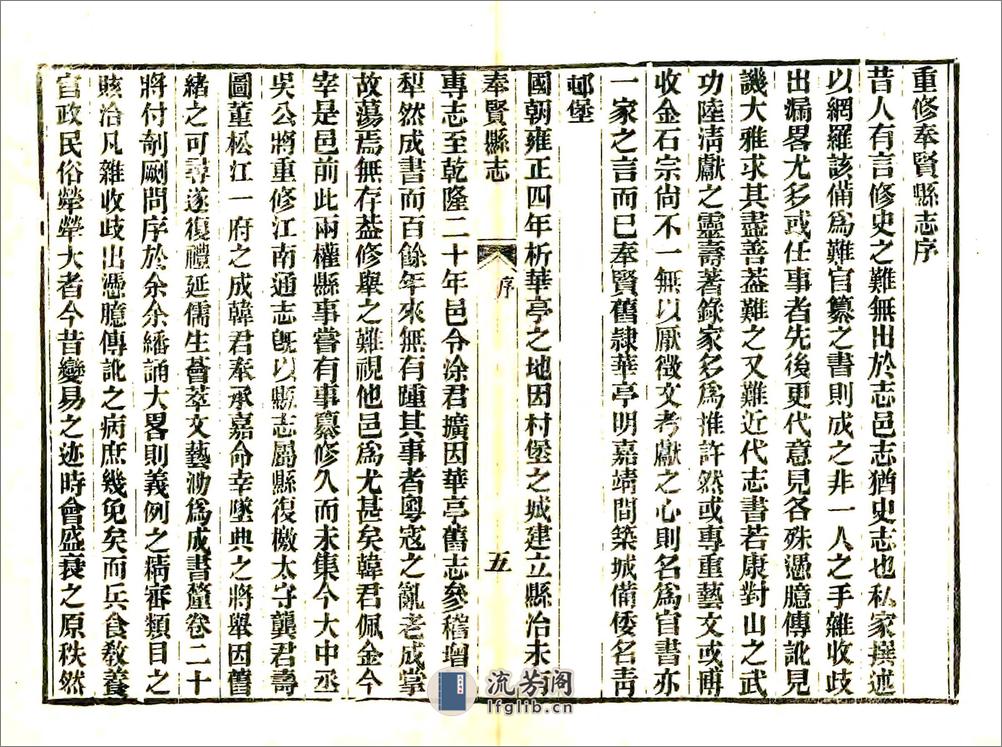 重修奉賢縣志序
昔人有言修史之難無出於志邑志猶史志也私家撰述
以網羅該備爲難官纂之書則成之非一人之手雜收歧
出漏畧尤多或任事者先後更代意見各殊憑臆傳訛見
譏大雅求其盡善葢難之又難近代志書若康對山之武
功陸淸獻之靈壽著錄家多爲推許然或專重藝文或專
收金石宗尙不一無以厭徵文考獻之心則名爲官書亦
一家之言而已奉賢舊隷華亭明嘉靖間築城備倭名靑
邨堡
國朝雍正四年析華亭之地因村堡之城建立縣治未有
奉賢縣志
序
五
專志至乾隆二十年邑令涂君擴因華亭舊志參稽增
犁然成書而百餘年來無有踵其事者粵寇之亂老成掌
故蕩焉無存葢修舉之難視他邑爲尤甚矣韓君佩金今
宰是邑前此兩權縣事嘗有事纂修久而未集今大中丞
吳公將重修江南通志旣以縣志屬縣復檄太守龔君壽
圖董松江一府之成韓君奉承嘉命幸墜典之將舉因舊
緖之可尋遂復禮延儒生薈萃文藝泐爲成書釐卷二十
將付剞劂問序於余余繙誦大畧則義例之精審類目之
賅洽凡雜收歧出憑臆傳訛之病庶幾免矣而兵食敎養
官政民俗犖犖大者今昔變易之迹時會盛衰之原秩然
流芳阁
lfglib.com